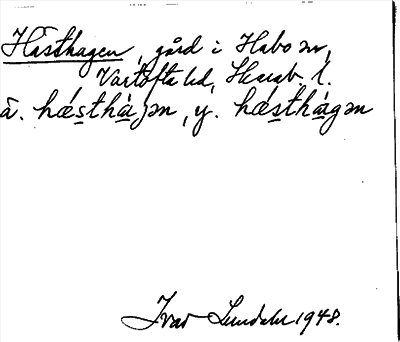 Hästhagen, gård i Habo sn,
Vartofta hd, Skarab. l.
ä. hǽsthàɡən, y. hǽsthàgən
Ivar Lundahl 1948.